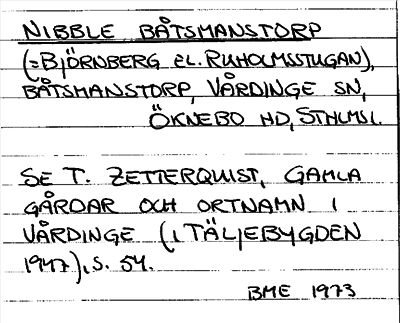 NIBBLE BÅTSMANSTORP
(=BJÖRNBERG EL. RUHOLMSSTUGAN),
BÅTSMANSTORP, VÅRDINGE SN,
ÖKNEBO HD, STHLMS L.
SE T. ZETTERQUIST, GAMLA
GÅRDAR OCH ORTNAMN I
VÅRDINGE (I TÄLJEBYGDEN
1947), S. 54.
BME 1973